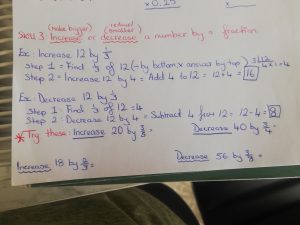 x 0.25
x
(make bigger) (reduce/smaller)
Skill 3: Increase or decrease a number by a fraction
Ex: Increase 12 by 1/3
Step 1 = Find 1/3 of 12 (÷ by bottom x answer by top)
Step 2 = Increase 12 by 4 = Add 4 to 12 = 12+4 = 16
Ex: Decrease 12 by 1/3
Step 1 : Find 1/3 of 12 = 4
Step 2 : Decrease 12 by 4 = Subtract 4 from 12 = 12-4 = 8
* Try these: Increase 20 by Decrease 40 by
Increase 18 by Decrease 56 by